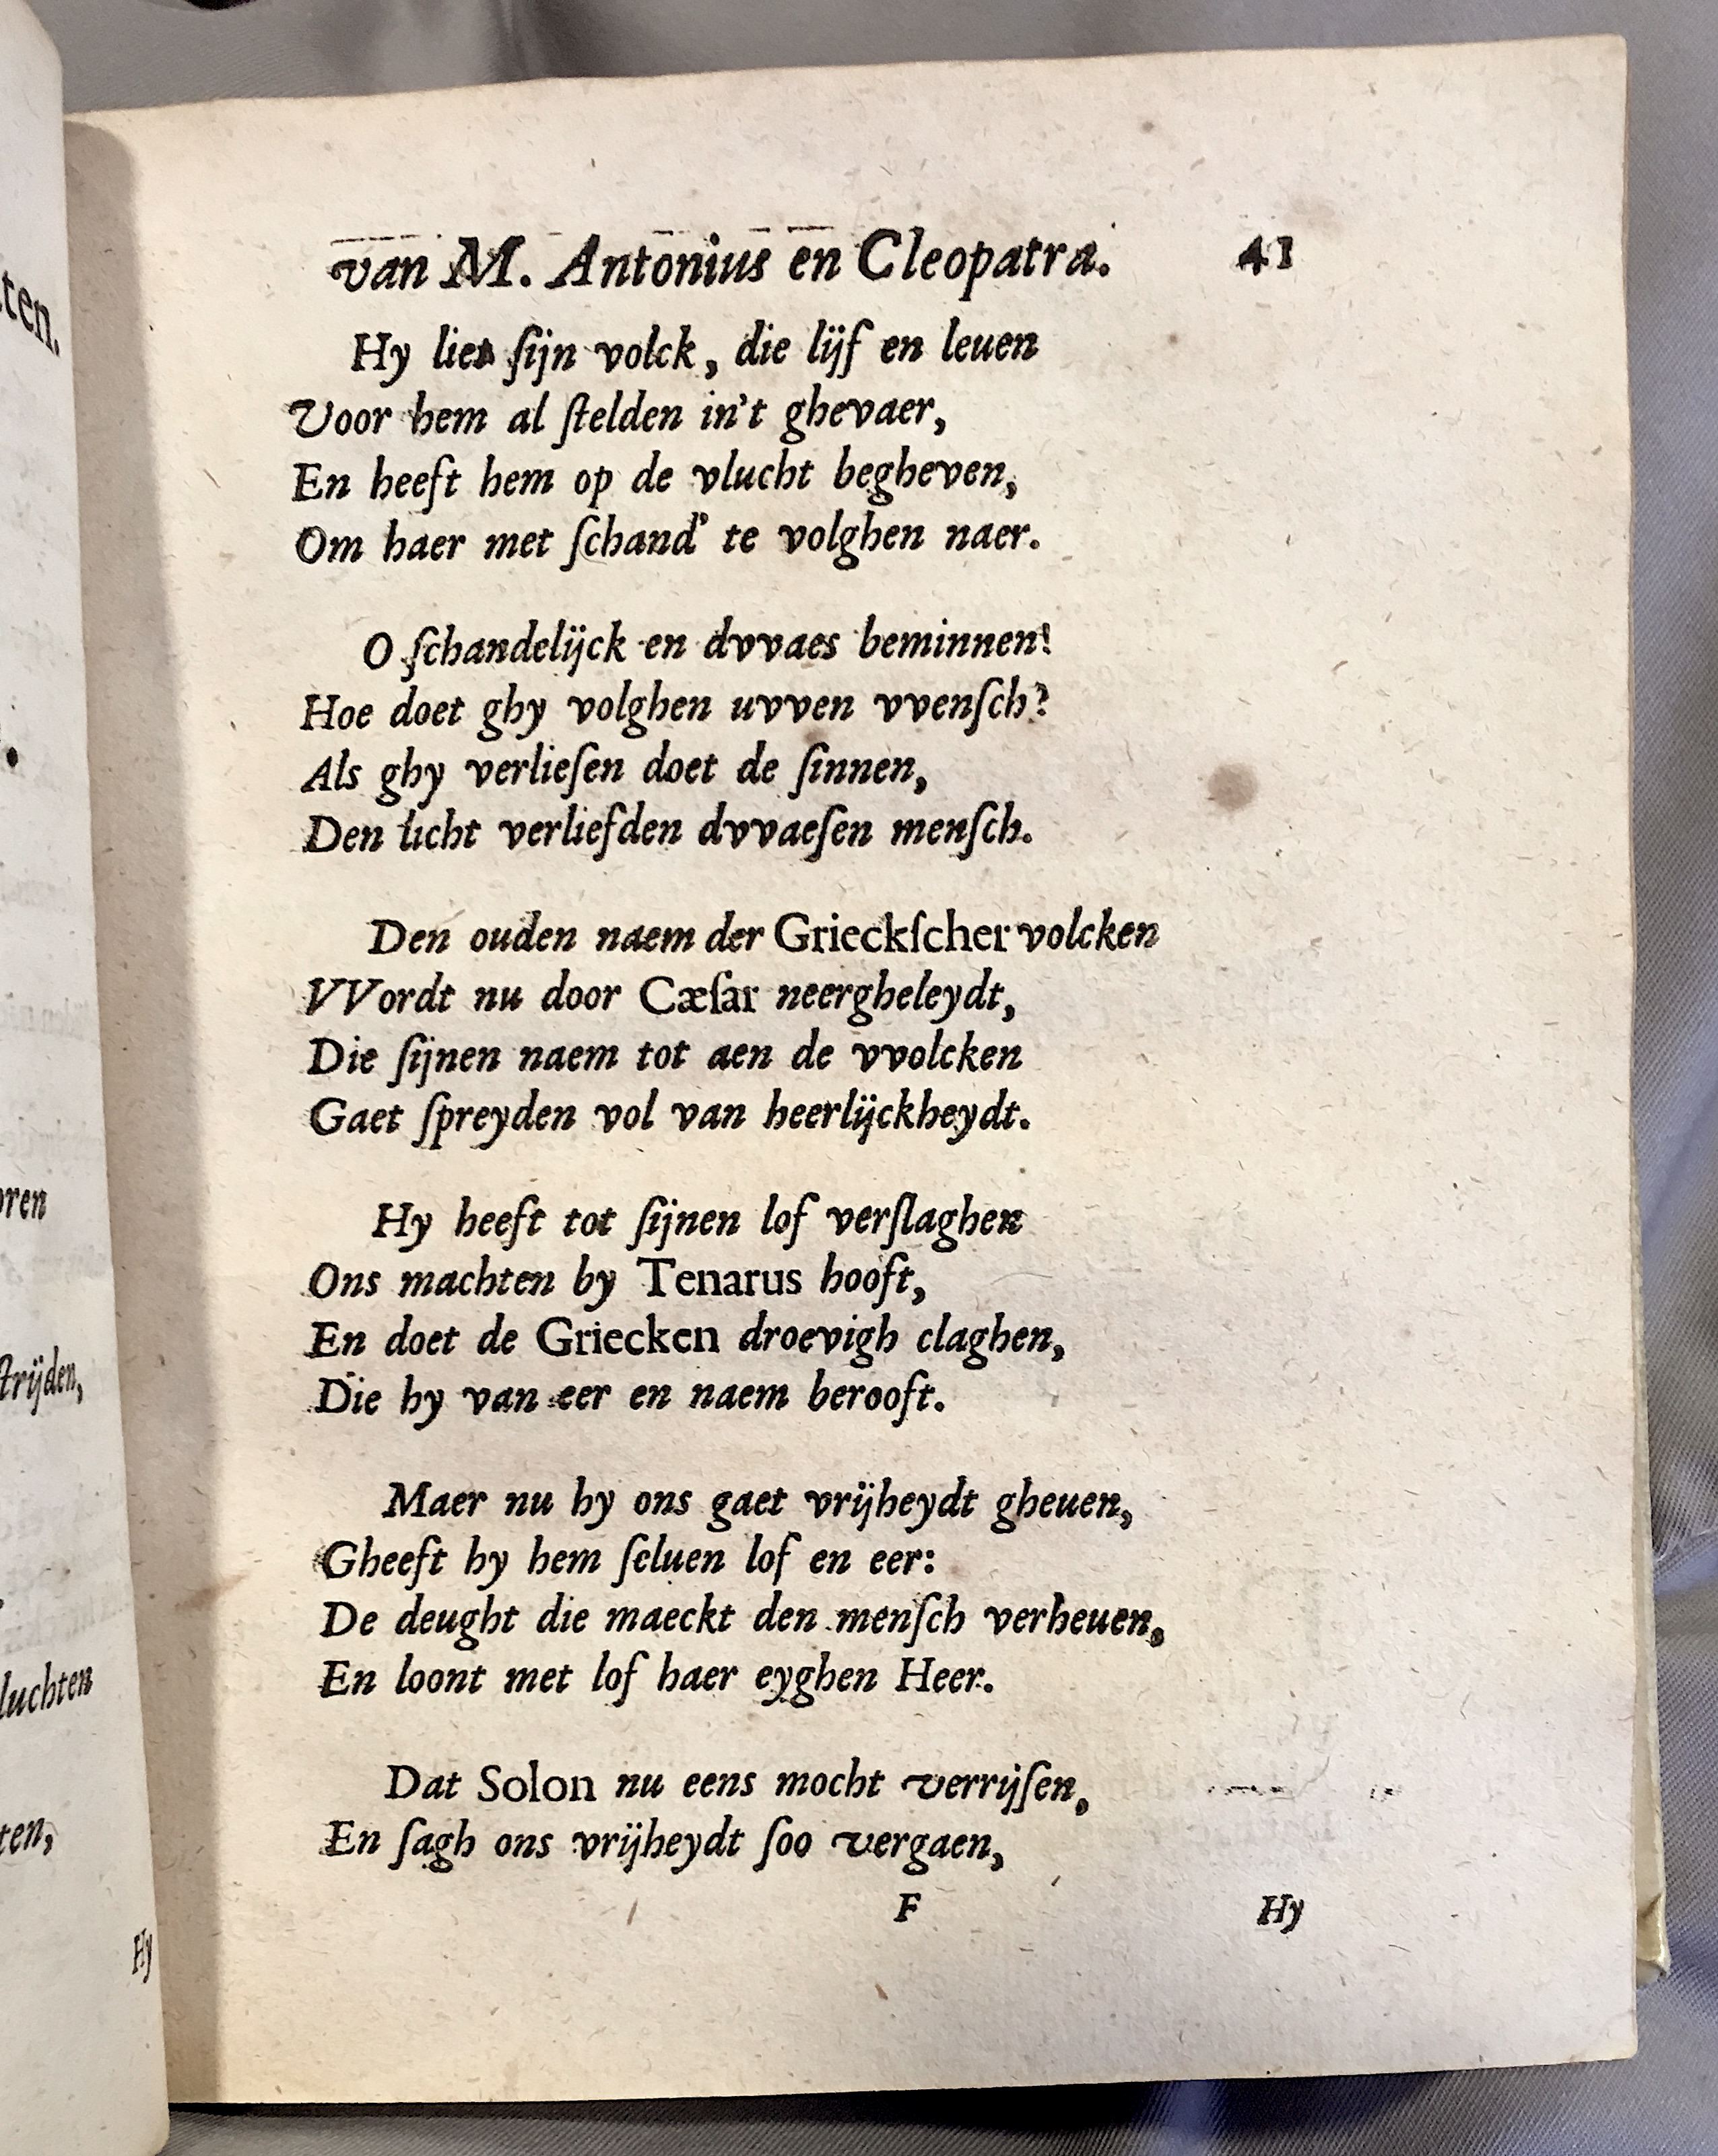 van M. Antonius en Cleopatra. 41
Hy liet ſijn volck, die lijf en leuen
Voor hem al ſtelden in't ghevaer,
En heeft hem op de vlucht begheven,
Om haer met ſchand' te volghen naer.
O ſchandelijck en dvvaes beminnen!
Hoe doet ghy volghen uvven vvenſch?
Als ghy verlieſen doet de ſinnen,
Den licht verliefden dvvaeſen menſch.
Den ouden naem der Grieckſcher volcken
VVordt nu door Cæſar neergheleydt,
Die ſijnen naem tot aen de vvolcken
Gaet ſpreyden vol van heerlijckheydt.
Hy heeft tot ſijnen lof verſlaghen
Ons machten by Tenarus hooft,
En doet de Griecken droevigh claghen,
Die hy van eer en naem berooft.
Maer nu hy ons gaet vrijheydt gheuen,
Gheeft hy hem ſeluen lof en eer:
De deught die maeckt den menſch verheuen,
En loont met lof haer eyghen Heer.
Dat Solon nu eens mocht verrijſen,
En ſagh ons vrijheydt ſoo vergaen,
F Hy
ten.
oren
ſtrijden,
luchten
ten,
Hy